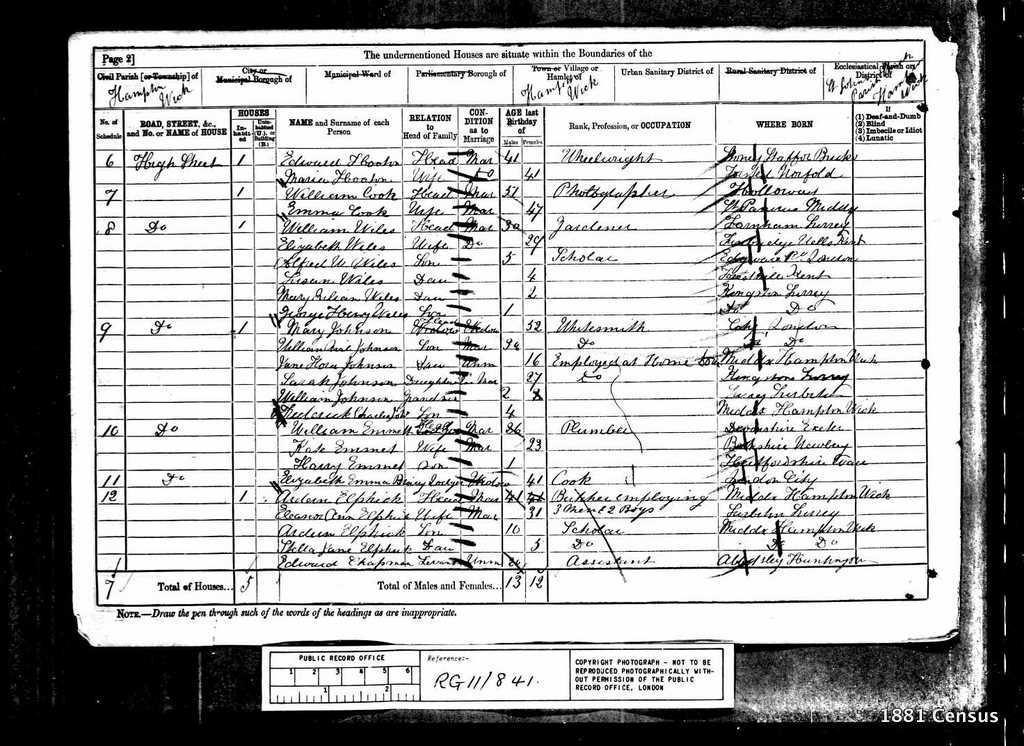 Page 2]
The undermentioned Houses are situate within the Boundaries of the
Civil Parish [or Township] of
City or Municipal Borough of
Municipal Ward of
Parliamentary Borough of
Town or Village or Hamlet of
Urban Sanitary District of
Rural Sanitary District of
Ecclesiastical Parish or District of
Hampton Wick
Hampton Wick
St John's Parish Hampton Wick
No. of Schedule
ROAD, STREET, &c., and No. or NAME of HOUSE
HOUSES
Inhabited
Uninhabited (U.), or Building (B.)
NAME and Surname of each Person
RELATION to Head of Family
CONDITION as to Marriage
AGE last Birthday of
Males
Females
Rank, Profession, or OCCUPATION
WHERE BORN
If
(1) Deaf-and-Dumb
(2) Blind
(3) Imbecile or Idiot
(4) Lunatic
6 High Street 1 Edward Head Mar 41 Wheelwright
Maria Wife Do 41 Norfolk
7 1 William Cook Head Mar 51 Photographer Holloway
Emma Cook Wife Mar 47 St Pancras Middx
8 Do 1 William Wiles Head Mar 30 Gardener Farnham Surrey
Elizabeth Wiles Wife Do 29 Kent
Alfred W Wiles Son 5 Scholar Edgware Rd London
Susan Wiles Dau 4 Kent
Mary Wiles Dau 2 Kingston Surrey
George Henry Wiles Son 1 Do Do
9 Do 1 Mary Johnson Head Widow 52 Whitesmith London
William Johnson Son Mar Do Do Do
Jane Johnson Dau Unm 16 Employed at Home Middx Hampton Wick
Sarah Johnson Daughter in Mar 27 Do Kingston Surrey
William Johnson Grandson 2 Surrey Surbiton
Frederick Charles Son 4 Middx Hampton Wick
10 Do William Emmett Mar 26 Plumber Devonshire Exeter
Kate Emmet Wife Mar 23 Berkshire Newbury
Harry Emmet Son 1 Hertfordshire
11 Do Elizabeth Emma Lodger Widow 41 Cook London City
12 1 Arden Elphick Head Mar 41 Butcher employing Middx Hampton Wick
Eleanor Ann Elphick Wife Mar 31 3 Men & 2 Boys Surbiton Surrey
Arden Elphick Son 10 Scholar Middx Hampton Wick
Stella Jane Elphick Dau 5 Do Do Do
Edward Chapman Servant Unm Assistant
7 Total of Houses... 5 Total of Males and Females... 13 12
NOTE.—Draw the pen through such of the words of the headings as are inappropriate.
PUBLIC RECORD OFFICE
1 2 3 4 5 6
1 2
Reference:-
RG 11/841.
COPYRIGHT PHOTOGRAPH - NOT TO BE
REPRODUCED PHOTOGRAPHICALLY WITH-
OUT PERMISSION OF THE PUBLIC
RECORD OFFICE, LONDON
1881 Census